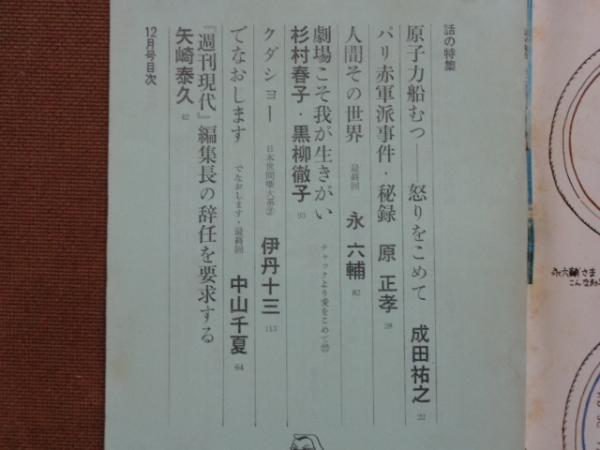 話の特集
原子力船むつ── 怒りをこめて 成田祐之 22
パリ赤軍派事件・秘録 原 正孝 28
人間その世界 最終回 永 六輔 82
劇場こそ我が生きがい チャックより愛をこめて㉒
杉村春子・黒柳徹子 93
クダショー 日本世間噺大系② 伊丹十三 113
でなおします でなおします・最終回 中山千夏 64
『週刊現代』編集長の辞任を要求する
矢崎泰久 62
12月号目次
永六輔さま